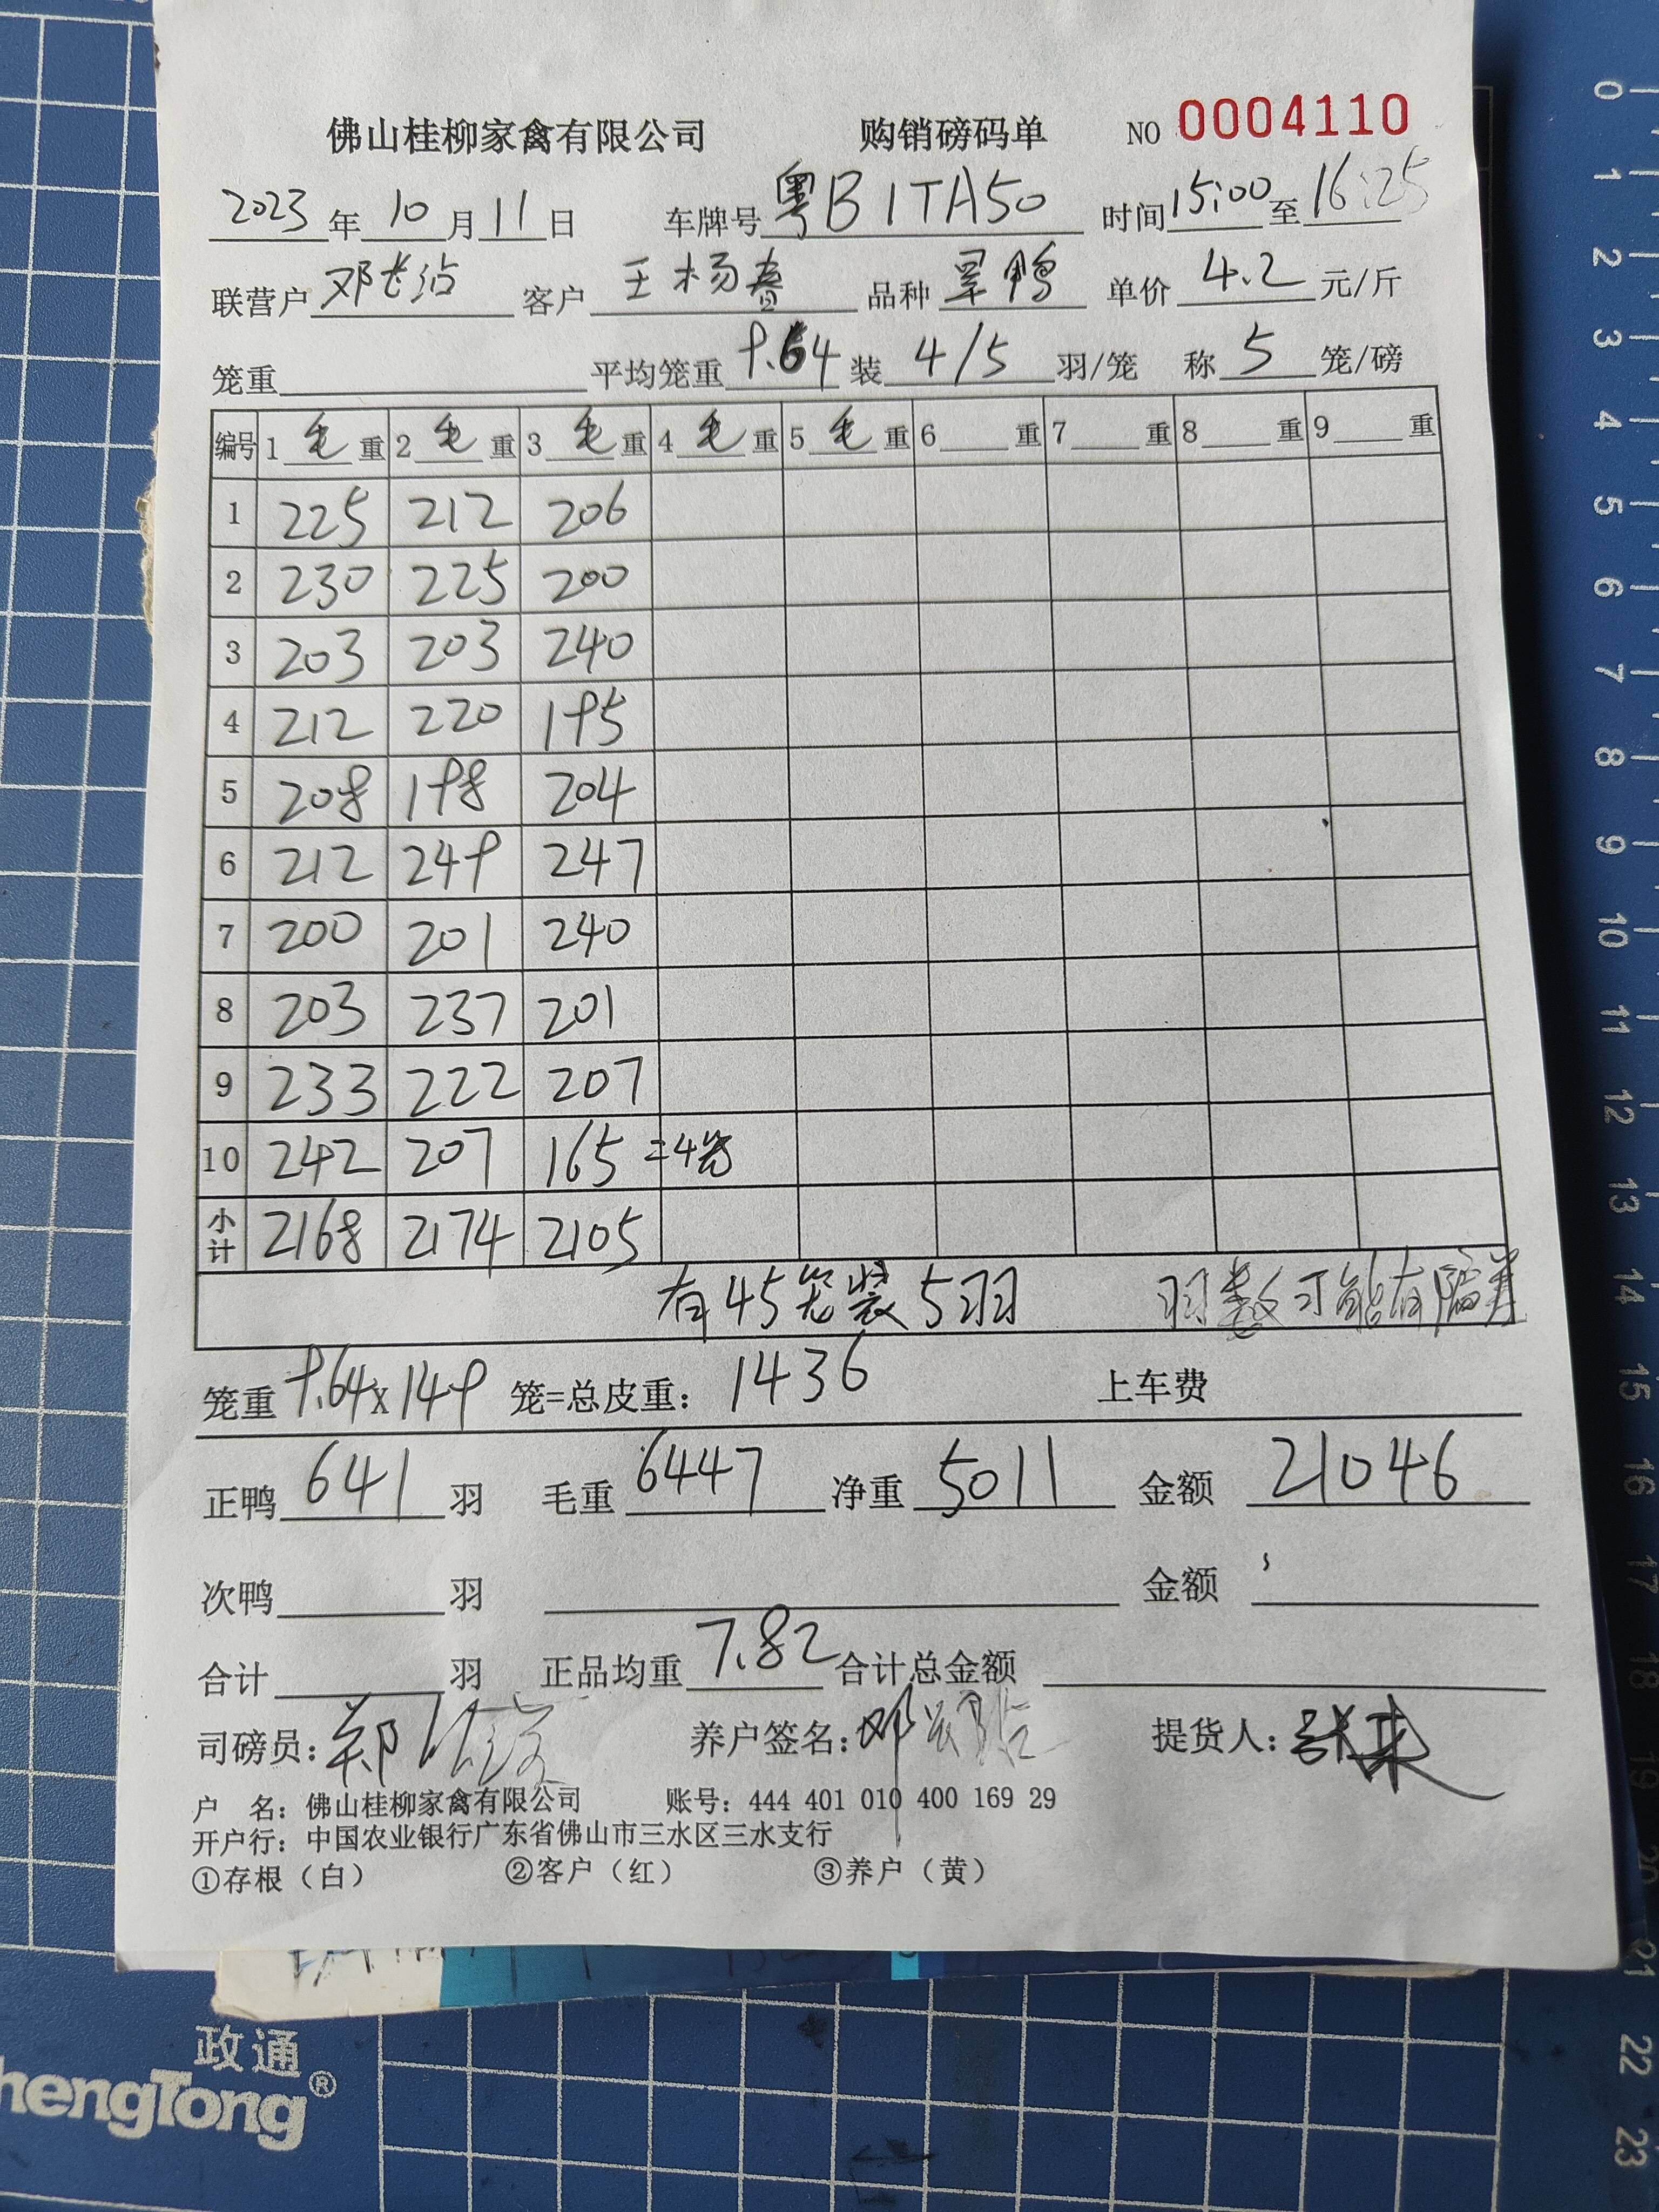 佛山桂柳家禽有限公司 购销磅码单 NO 0004110
2023年10月11日 车牌号粤B1TA50 时间15:00至16:25
联营户邓 客户王杨春 品种旱鸭 单价4.2元/斤
笼重 平均笼重9.64装4/5羽/笼 称5笼/磅
编号 1毛重 2毛重 3毛重 4毛重 5毛重 6重 7重 8重 9重
1 225 212 206
2 230 225 200
3 203 203 240
4 212 220 195
5 208 198 204
6 212 249 247
7 200 201 240
8 203 237 201
9 233 222 207
10 242 207 165=4笼
小计 2168 2174 2105
有45笼装5羽 羽数可能有
笼重9.64x149 笼=总皮重：1436 上车费
正鸭641羽 毛重6447 净重5011 金额21046
次鸭 羽 金额
合计 羽 正品均重7.82合计总金额
司磅员：郑 养户签名：邓 提货人：张
户 名：佛山桂柳家禽有限公司 账号：444 401 010 400 169 29
开户行：中国农业银行广东省佛山市三水区三水支行
①存根（白） ②客户（红） ③养户（黄）
0
1
2
3
4
5
6
7
8
9
10
11
12
13
14
15
16
17
18
19
20
21
22
23
政通
hengTong®